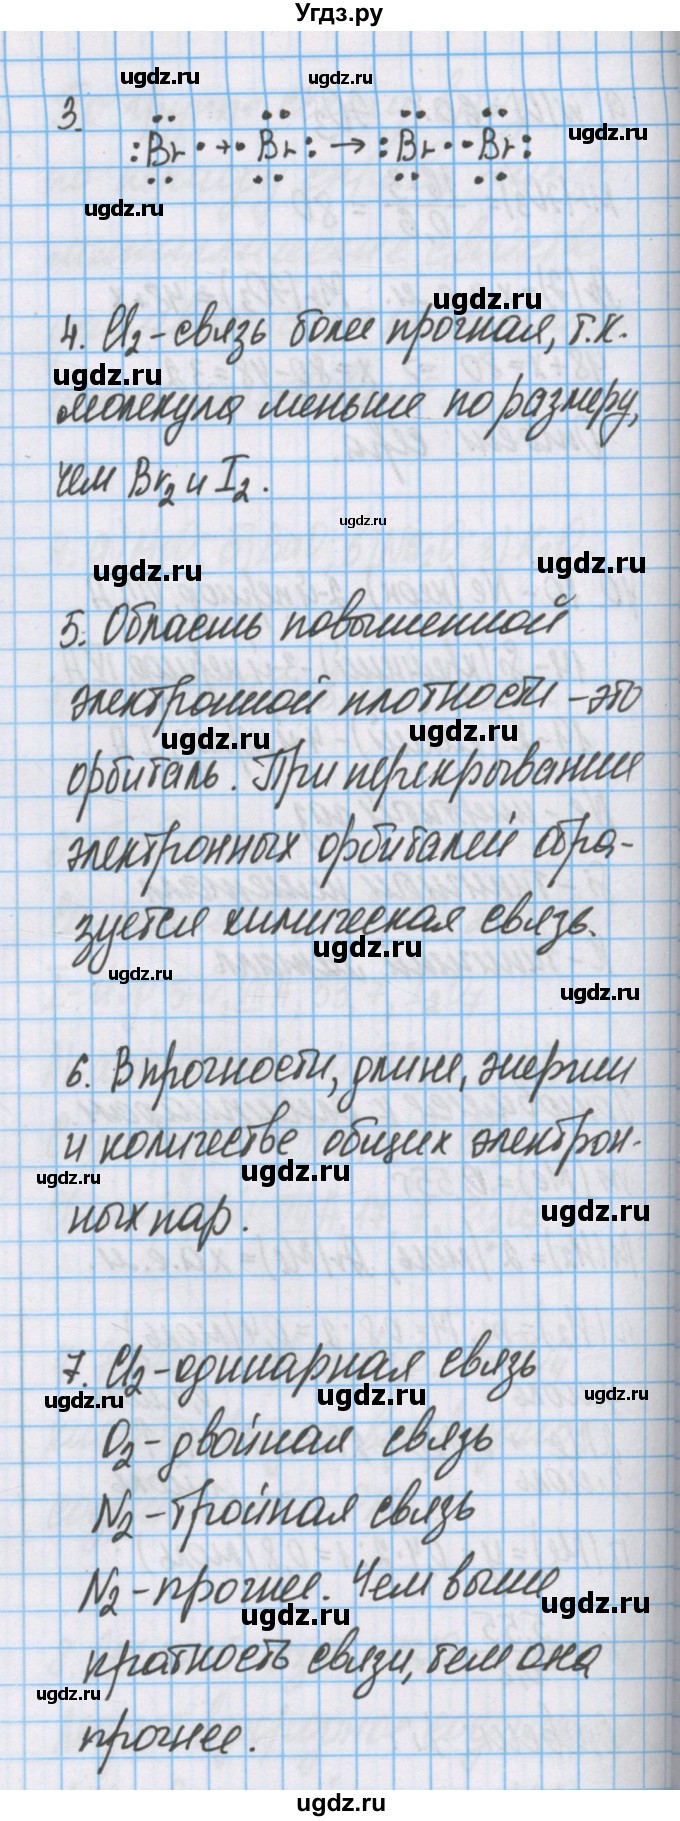 Угдз.ру
ugdz.ru ugdz.ru
3. :Br· + ·Br: → :Br··Br:
ugdz.ru
ugdz.ru
ugdz.ru
4. Cl₂ - связь более прочная, т.к.
ugdz.ru
молекула меньше по размеру,
чем Br₂ и I₂.
ugdz.ru
ugdz.ru ugdz.ru
5. Область повышенной
электронной плотности - это
ugdz.ru ugdz.ru
орбиталь. При перекрывании
электронных орбиталей обра-
зуется химическая связь.
ugdz.ru
ugdz.ru
ugdz.ru
6. В прочности, длине, энергии
и количестве общих электрон-
ugdz.ru ugdz.ru
ных пар.
ugdz.ru
7. Cl₂ - одинарная связь
ugdz.ru ugdz.ru ugdz.ru
O₂ - двойная связь
N₂ - тройная связь
N₂ - прочнее. Чем выше
ugdz.ru ugdz.ru
кратность связи, тем она
ugdz.ru
прочнее.
ugdz.ru